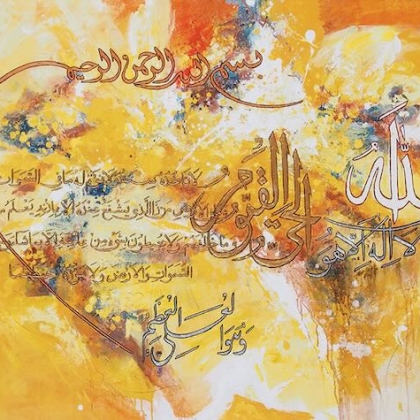 بسم الله الرحمن الرحيم
الله
لا اله الا هو
الحي القيوم
لا تاخذه سنة ولا نوم له ما في السموات
من ذا الذي يشفع عنده الا باذنه يعلم
وما خلفهم ولا يحيطون بشيء من علمه الا بما شاء
السموات والارض ولا يؤده حفظهما
وهو العلي العظيم